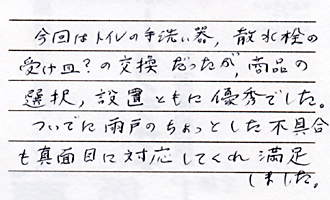 今回はトイレの手洗い器，散水栓の
受け皿？の交換だったが，商品の
選択，設置ともに優秀でした。
ついでに雨戸のちょっとした不具合
も真面目に対応してくれ満足
しました。